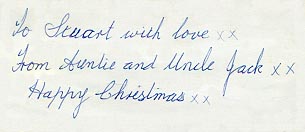 To Stuart with love xx
From Auntie and Uncle Jack xx
Happy Christmas xx